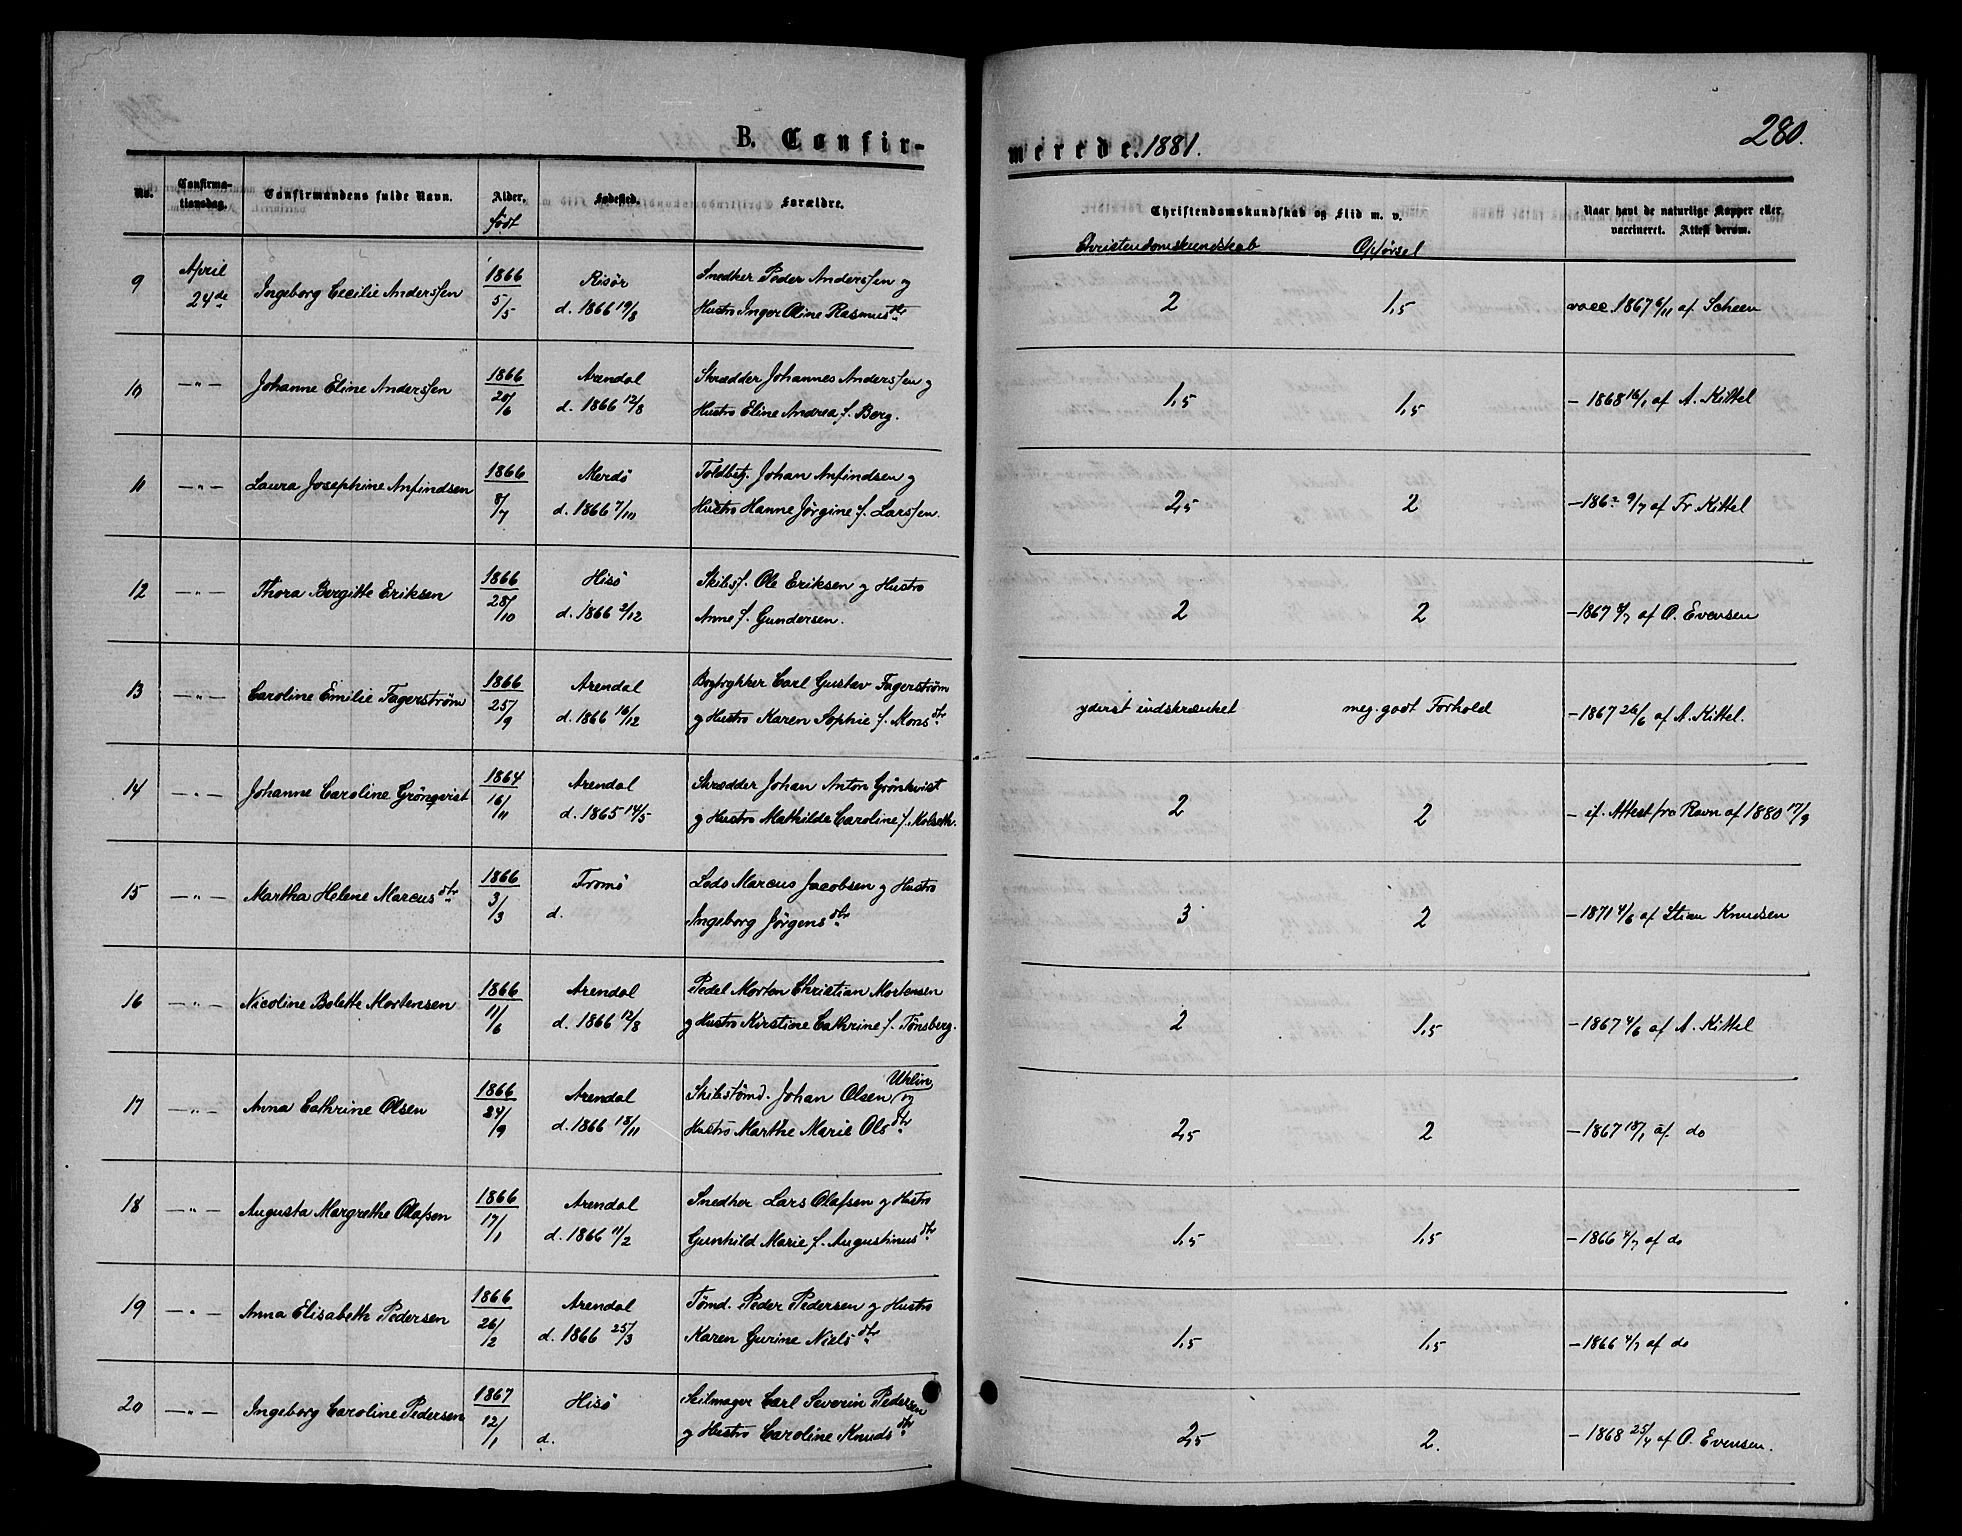 280.
B. Confir-
merede. 1881.
No.
Confirma-
tionsdag.
Confirmandens fulde Navn.
Alder.
født
Fødested.
Forældre.
Christendomskundskab og Flid m. v.
Christendomskundskab Opførsel
Naar havt de naturlige Kopper eller
vaccineret. Attest derom.
9 April 24de Ingeborg Cecilie Anderssen 1866 5/5 Risör Snedker Peder Anderssen og
d. 1866 19/8 Hustro Inger Oline Rasmusdtr 2 1,5 vacc. 1867 6/11 af Scheen
10 —"— Johanne Eline Anderssen 1866 20/6 Arendal Skrædder Johannes Anderssen og
d. 1866 12/8 Hustro Eline Andrea f. Berg. 1,5 1,5 — 1868 16/1 af A. Kittel
11 —"— Laura Josephine Anfindsen 1866 8/7 Merdö Toldbtj. Johan Anfindsen og
d. 1866 7/10 Hustro Hanne Jörgine f. Larssen. 2,5 2 — 9/7 af Fr. Kittel
12 —"— Thora Bergitte Eriksen 1866 28/10 Hisö Skibsf. Ole Eriksen og Hustro
d. 1866 2/12 Anne f. Gundersen. 2 2 — 1867 af O. Evensen
13 —"— Caroline Emilie Fagerström 1866 25/9 Arendal Bogtrykker Carl Gustav Fagerström
d. 1866 16/12 og Hustro Karen Sophie f. Monsdtr yderst indskrænket meg. godt Forhold — 1867 26/6 af A. Kittel.
14 —"— Johanne Caroline Grönqvist 1864 16/11 Arendal Skrædder Johan Anton Grönkvist
d. 1865 14/5 og Hustro Mathilde Caroline f. Molseth. 2 2 — if. Attest fra Ravn af 1880 17/9
15 —"— Martha Helene Marcusdtr 1866 3/3 Tromö Lods Marcus Jacobsen og Hustro
d. Ingeborg Jörgensdtr 3 2 — 1871 4/6 af Stian Knudsen
16 —"— Nicoline Bolette Mortensen 1866 11/6 Arendal Pedel Morten Christian Mortensen
d. 1866 12/8 og Hustro Kirstine Cathrine f. Tönsberg. 2 1,5 — 1867 4/6 af A. Kittel
17 —"— Anna Cathrine Olsen 1866 24/9 Arendal Skibstömd. Johan Olsen Uhlin og
d. 1866 18/11 Hustro Marthe Marie Olsdtr 2,5 2 — 1867 18/1 af do
18 —"— Augusta Margrethe Olafsen 1866 17/1 Arendal Snedker Lars Olafsen og Hustro
d. 1866 11/2 Gunhild Marie f. Augustinusdtr 1,5 1,5 — 1866 4/7 af do
19 —"— Anna Elisabeth Pedersen 1866 26/2 Arendal Tömd. Peder Pedersen og Hustro
d. 1866 25/3 Karen Gurine Nielsdtr 1,5 1,5 — 1866 4/7 af do
20 —"— Ingeborg Caroline Pedersen 1867 12/1 Hisö Seilmager Carl Severin Pedersen
d. og Hustro Caroline Knudsdtr 2,5 2. — 1868 25/4 af O. Evensen.